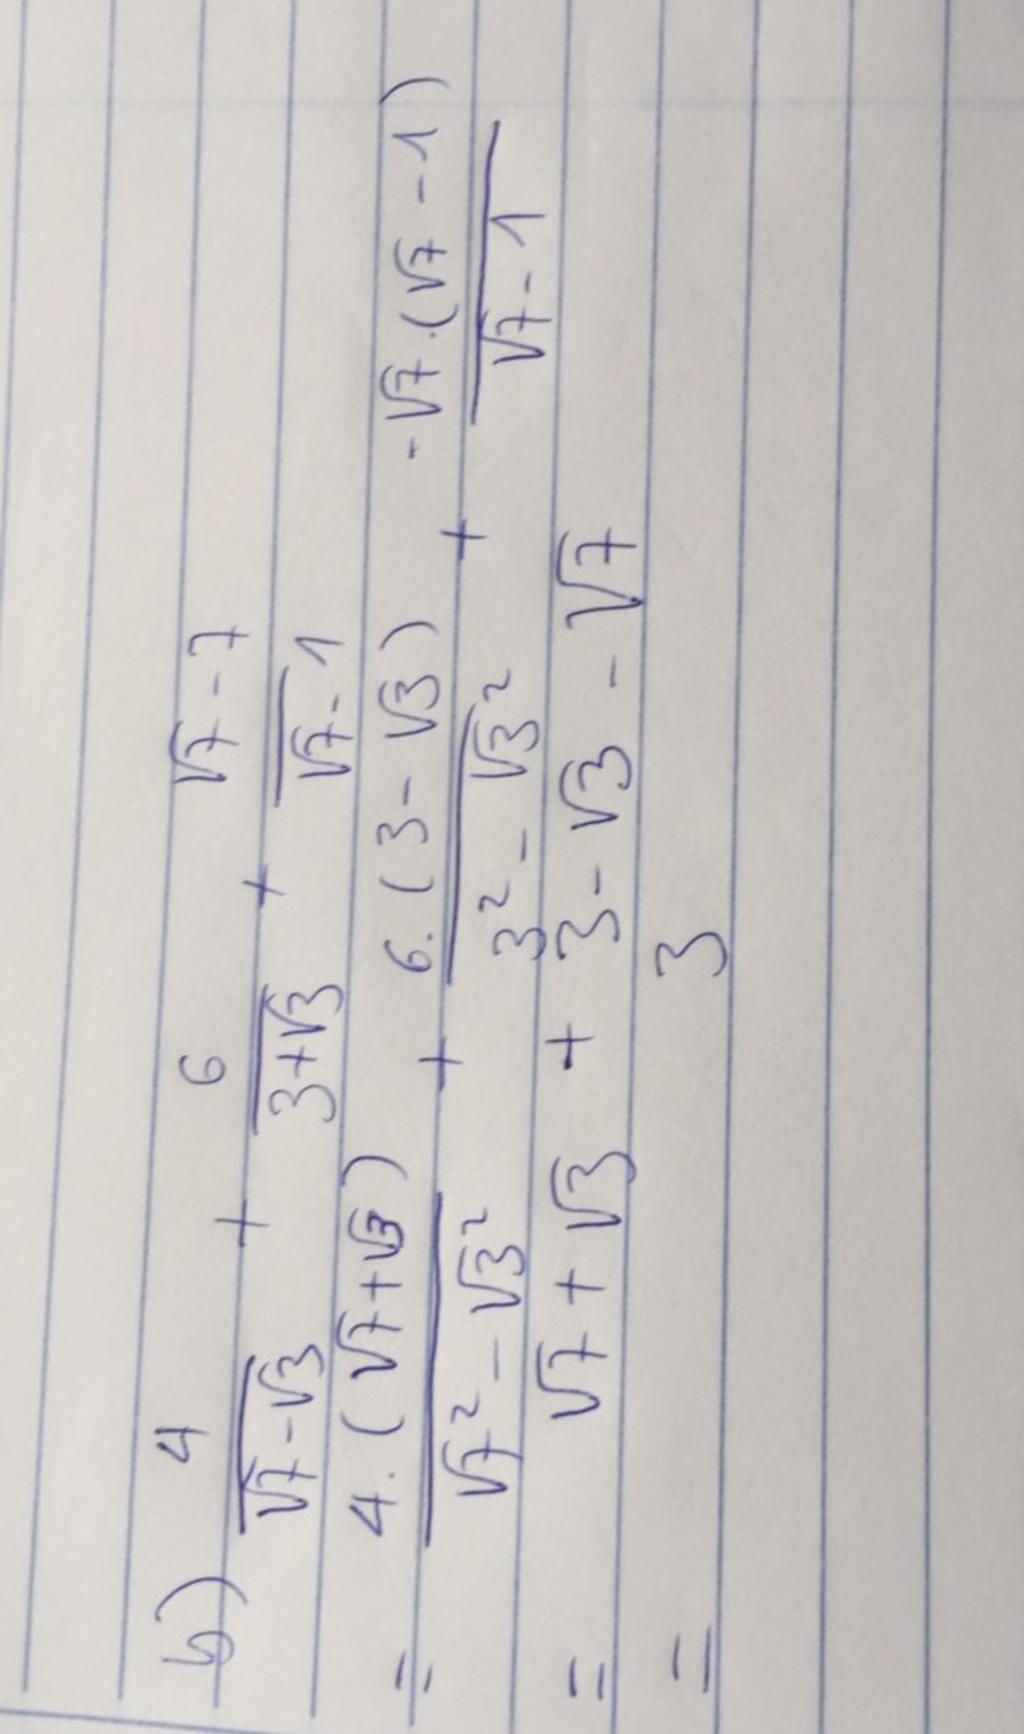 b) 4/(√7-√3) + 6/(3+√3) + (√7-7)/(√7-1)
= 4.(√7+√3)/(√7²-√3²) + 6.(3-√3)/(3²-√3²) + -√7.(√7-1)/(√7-1)
= √7+√3 + 3-√3 - √7
= 3